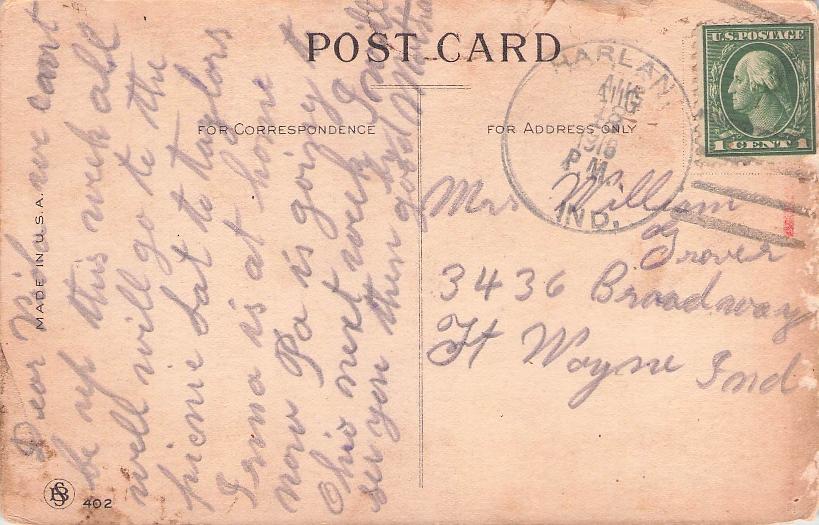 POST CARD
FOR CORRESPONDENCE
FOR ADDRESS ONLY
U.S. POSTAGE
1 CENT 1
HARLAN
AUG
1916
P.M.
IND.
Mrs William
Grover
3436 Broadway
Ft Wayne Ind
Dear we cant
be up this week all
well will go to the
picnic Sat to taylors
Irma is at home
now Pa is going to
Ohio next week I will
see you then good by Mother
MADE IN U.S.A.
402